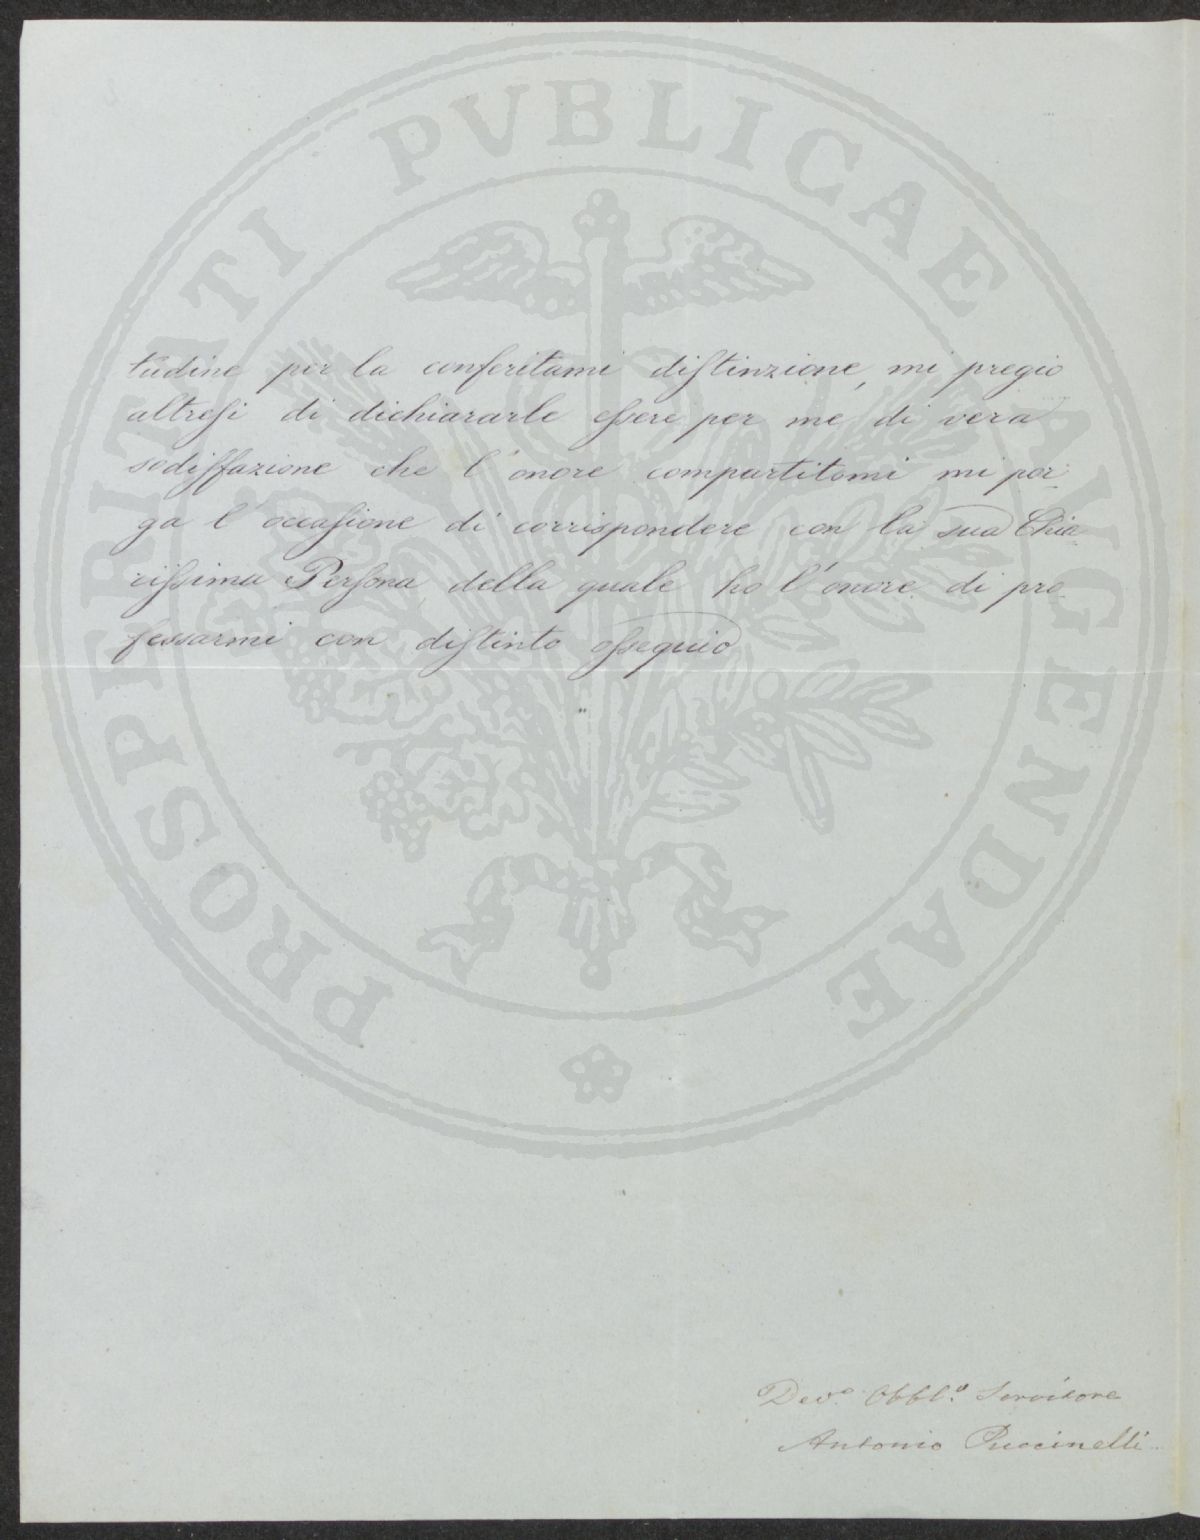 PROSPERITATI PVBLICAE AVGENDAE
tudine per la conferitami distinzione, mi pregio
altresi di dichiararle essere per me di vera
sodisfazione che l'onore compartitomi mi por-
ga l'occasione di corrispondere con la sua Chia-
rissima Persona della quale ho l'onore di pro-
fessarmi con distinto ossequio
Dev.º Obbl.º Servitore
Antonio Puccinelli